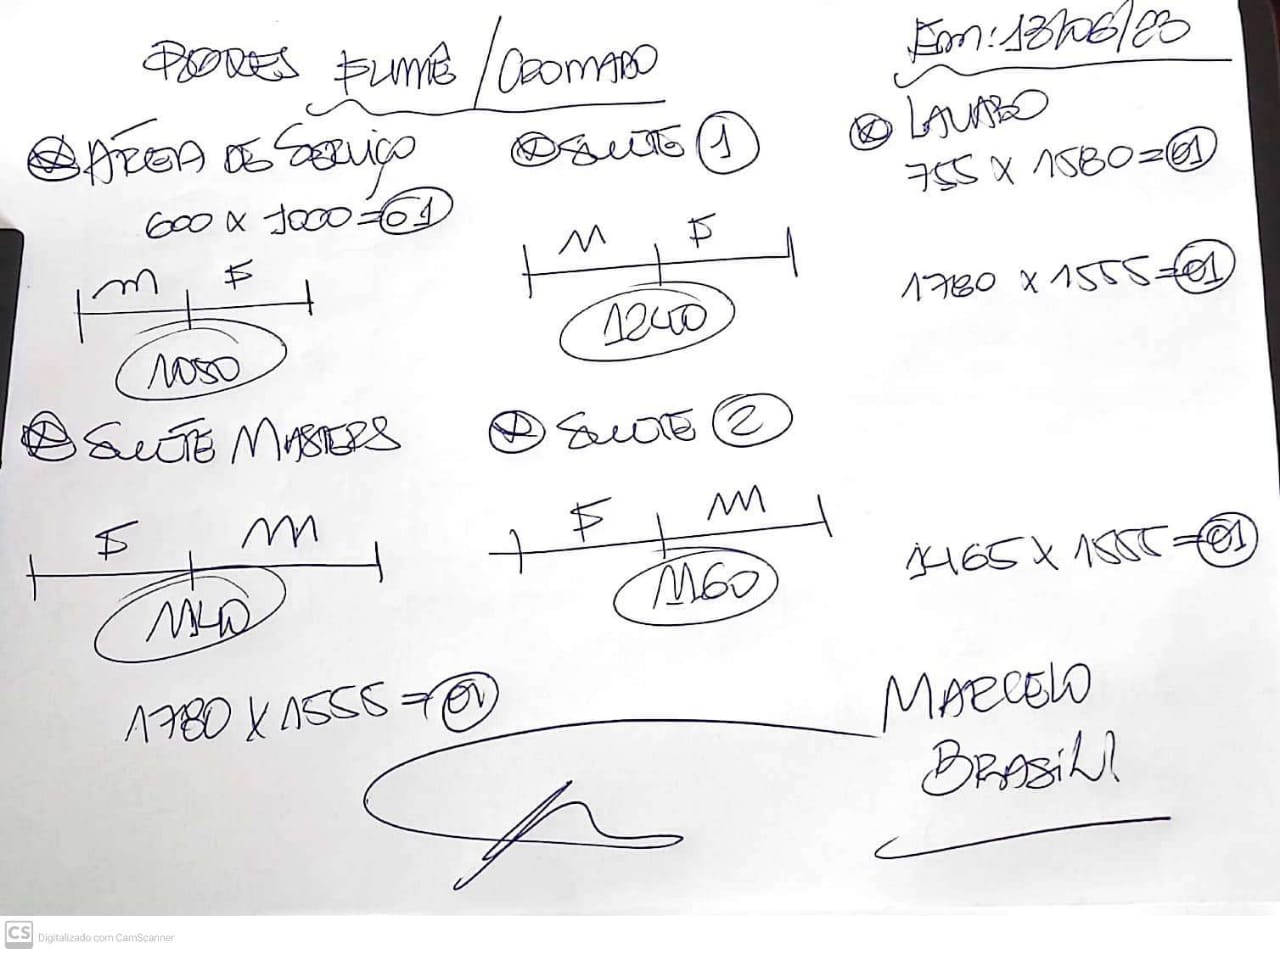 FUMÊ / CROMADO
Em: 13/06/23
ÁREA DE SERVIÇO
600 x 1000 = 01
M F
1050
SUITE 1
M F
1240
LAVABO
755 x 1580 = 01
1780 x 1555 = 01
SUITE MASTERS
F M
1140
1780 x 1555 = 01
SUITE 2
F M
1160
1465 x 1555 = 01
MARCELO
BRASIL
CS Digitalizado com CamScanner